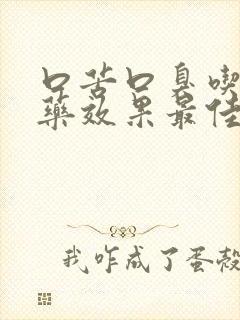 口苦口臭喫
藥效果最佳
我咋成了蛋殼